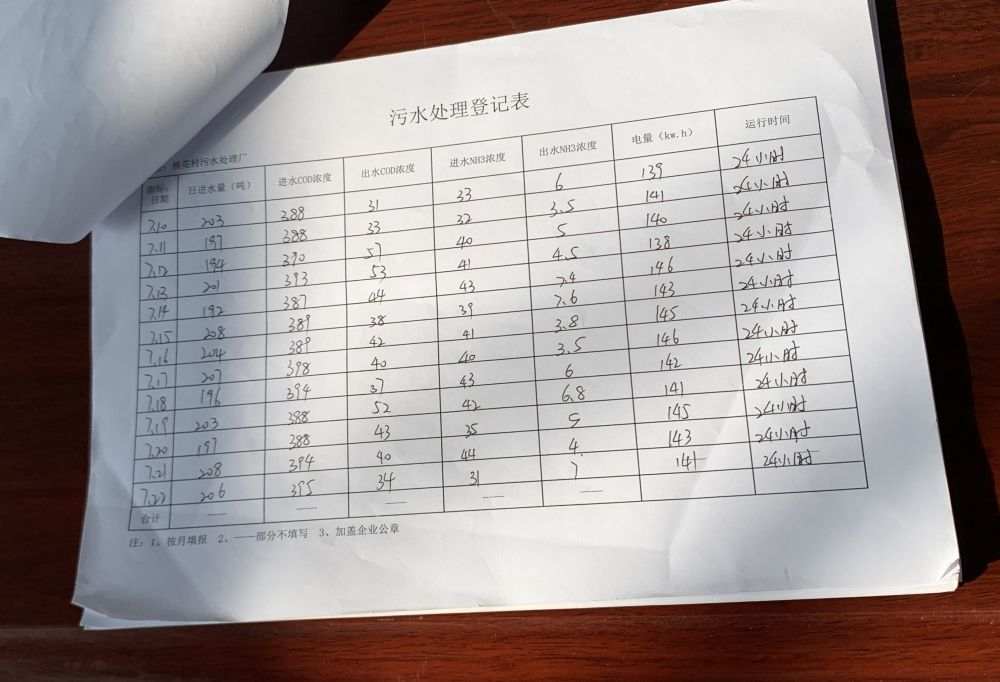 污水处理登记表
桃花村污水处理厂
指标 日期 日进水量（吨） 进水COD浓度 出水COD浓度 进水NH3浓度 出水NH3浓度 电量（kw.h） 运行时间
7.10 203 388 31 33 6 139 24小时
7.11 197 388 33 32 3.5 141 24小时
7.12 194 390 57 40 5 140 24小时
7.13 201 393 53 41 4.5 138 24小时
7.14 192 387 44 43 7.4 146 24小时
7.15 208 389 38 39 7.6 143 24小时
7.16 204 389 42 41 3.8 145 24小时
7.17 207 398 40 40 3.5 146 24小时
7.18 196 394 37 43 6 142 24小时
7.19 203 388 52 42 6.8 141 24小时
7.20 197 388 43 35 5 145 24小时
7.21 208 394 40 44 4 143 24小时
7.22 206 395 34 31 7 141 24小时
合计 —— —— —— —— ——
注：1、按月填报 2、——部分不填写 3、加盖企业公章